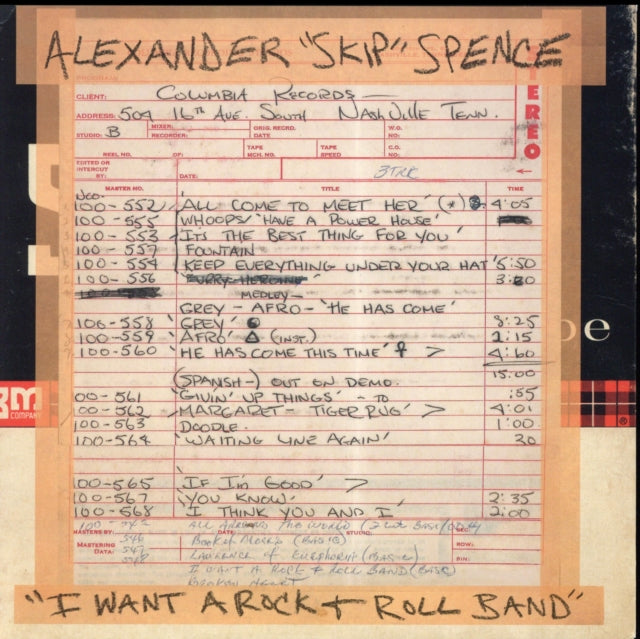 ALEXANDER "SKIP" SPENCE
PROGRAM
STEREO
CLIENT: COLUMBIA RECORDS —
ADDRESS: 504 16TH AVE. SOUTH NASHVILLE TENN.
STUDIO: B MIXER: RECORDER: ORIG. RECRD. DATE W.O. NO.
REEL NO. OF: TAPE MCH. NO. TAPE SPEED C.O. NO.
EDITED OR INTERCUT BY: DATE: 3TRK
MASTER NO. TITLE TIME
NCO-
100-552 'ALL COME TO MEET HER' (*) 4:05
100-555 WHOOPS/ 'HAVE A POWER HOUSE'
100-553 'IT'S THE BEST THING FOR YOU'
100-557 FOUNTAIN
100-554 KEEP EVERYTHING UNDER YOUR HAT' 5:50
100-556 FURRY HEROINE
MEDLEY—
GREY - AFRO - 'HE HAS COME'
100-558 'GREY' 8:25
100-559 'AFRO' (INST.) 2:15
100-560 'HE HAS COME THIS TIME' > 4:60
15:00
(SPANISH-) OUT ON DEMO.
00-561 'GIVIN' UP THINGS' - TO :55
100-562 MARGARET - TIGER RUG' > 4:01
100-563 DOODLE. 1:00
100-564 'WAITING LINE AGAIN' 20
100-565 'IF I'M GOOD' >
100-567 'YOU KNOW' 2:35
100-568 'I THINK YOU AND I' 2:00
100- ALL AROUND THE WORLD
MASTERS BY: DATE: STUDIO:
Mastering Data: 546 (BASIC) ROW:
547 LAWRENCE OF EUPHORIA (BASIC) BIN:
548 I WANT A ROCK & ROLL BAND (BASIC)
BROKEN HEART
"I WANT A ROCK + ROLL BAND"
3M
COMPANY
pe
®